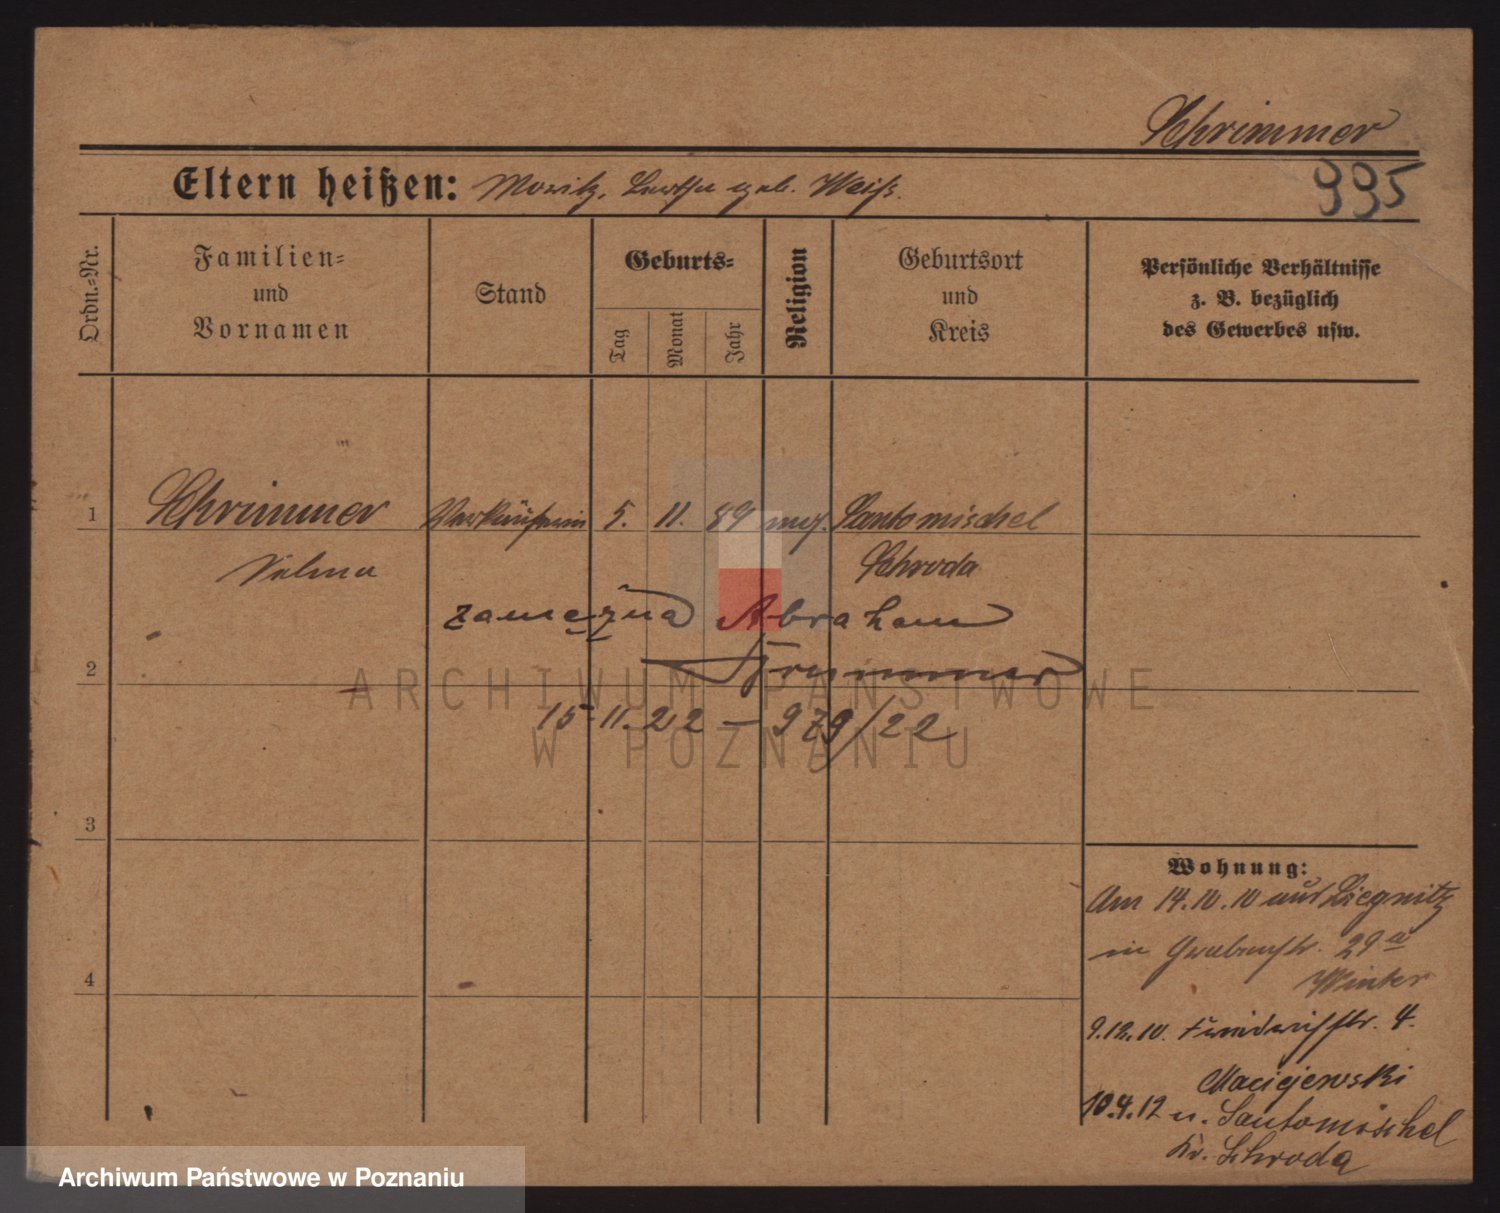 Schrimmer
995
Eltern heißen: Moritz, Bertha geb. Weiß.
Ordn.-Nr.
Familien- und Vornamen
Stand
Geburts-
Tag
Monat
Jahr
Religion
Geburtsort und Kreis
Persönliche Verhältnisse z. B. bezüglich des Gewerbes usw.
1 Schrimmer Verkäuferin 5. 11. 89 mos. Santomischel
Selma Schroda
zamężna Abraham
2
15.11.22 – 979/22
3
4
Wohnung:
Am 14.10.10 aus Liegnitz
in Grabenstr. 29a
Winter
9.12.10. Friedrichstr. 4.
Maciejewski
10.4.12 n. Santomischel
Kr. Schroda
ARCHIWUM PAŃSTWOWE
W POZNANIU
Archiwum Państwowe w Poznaniu